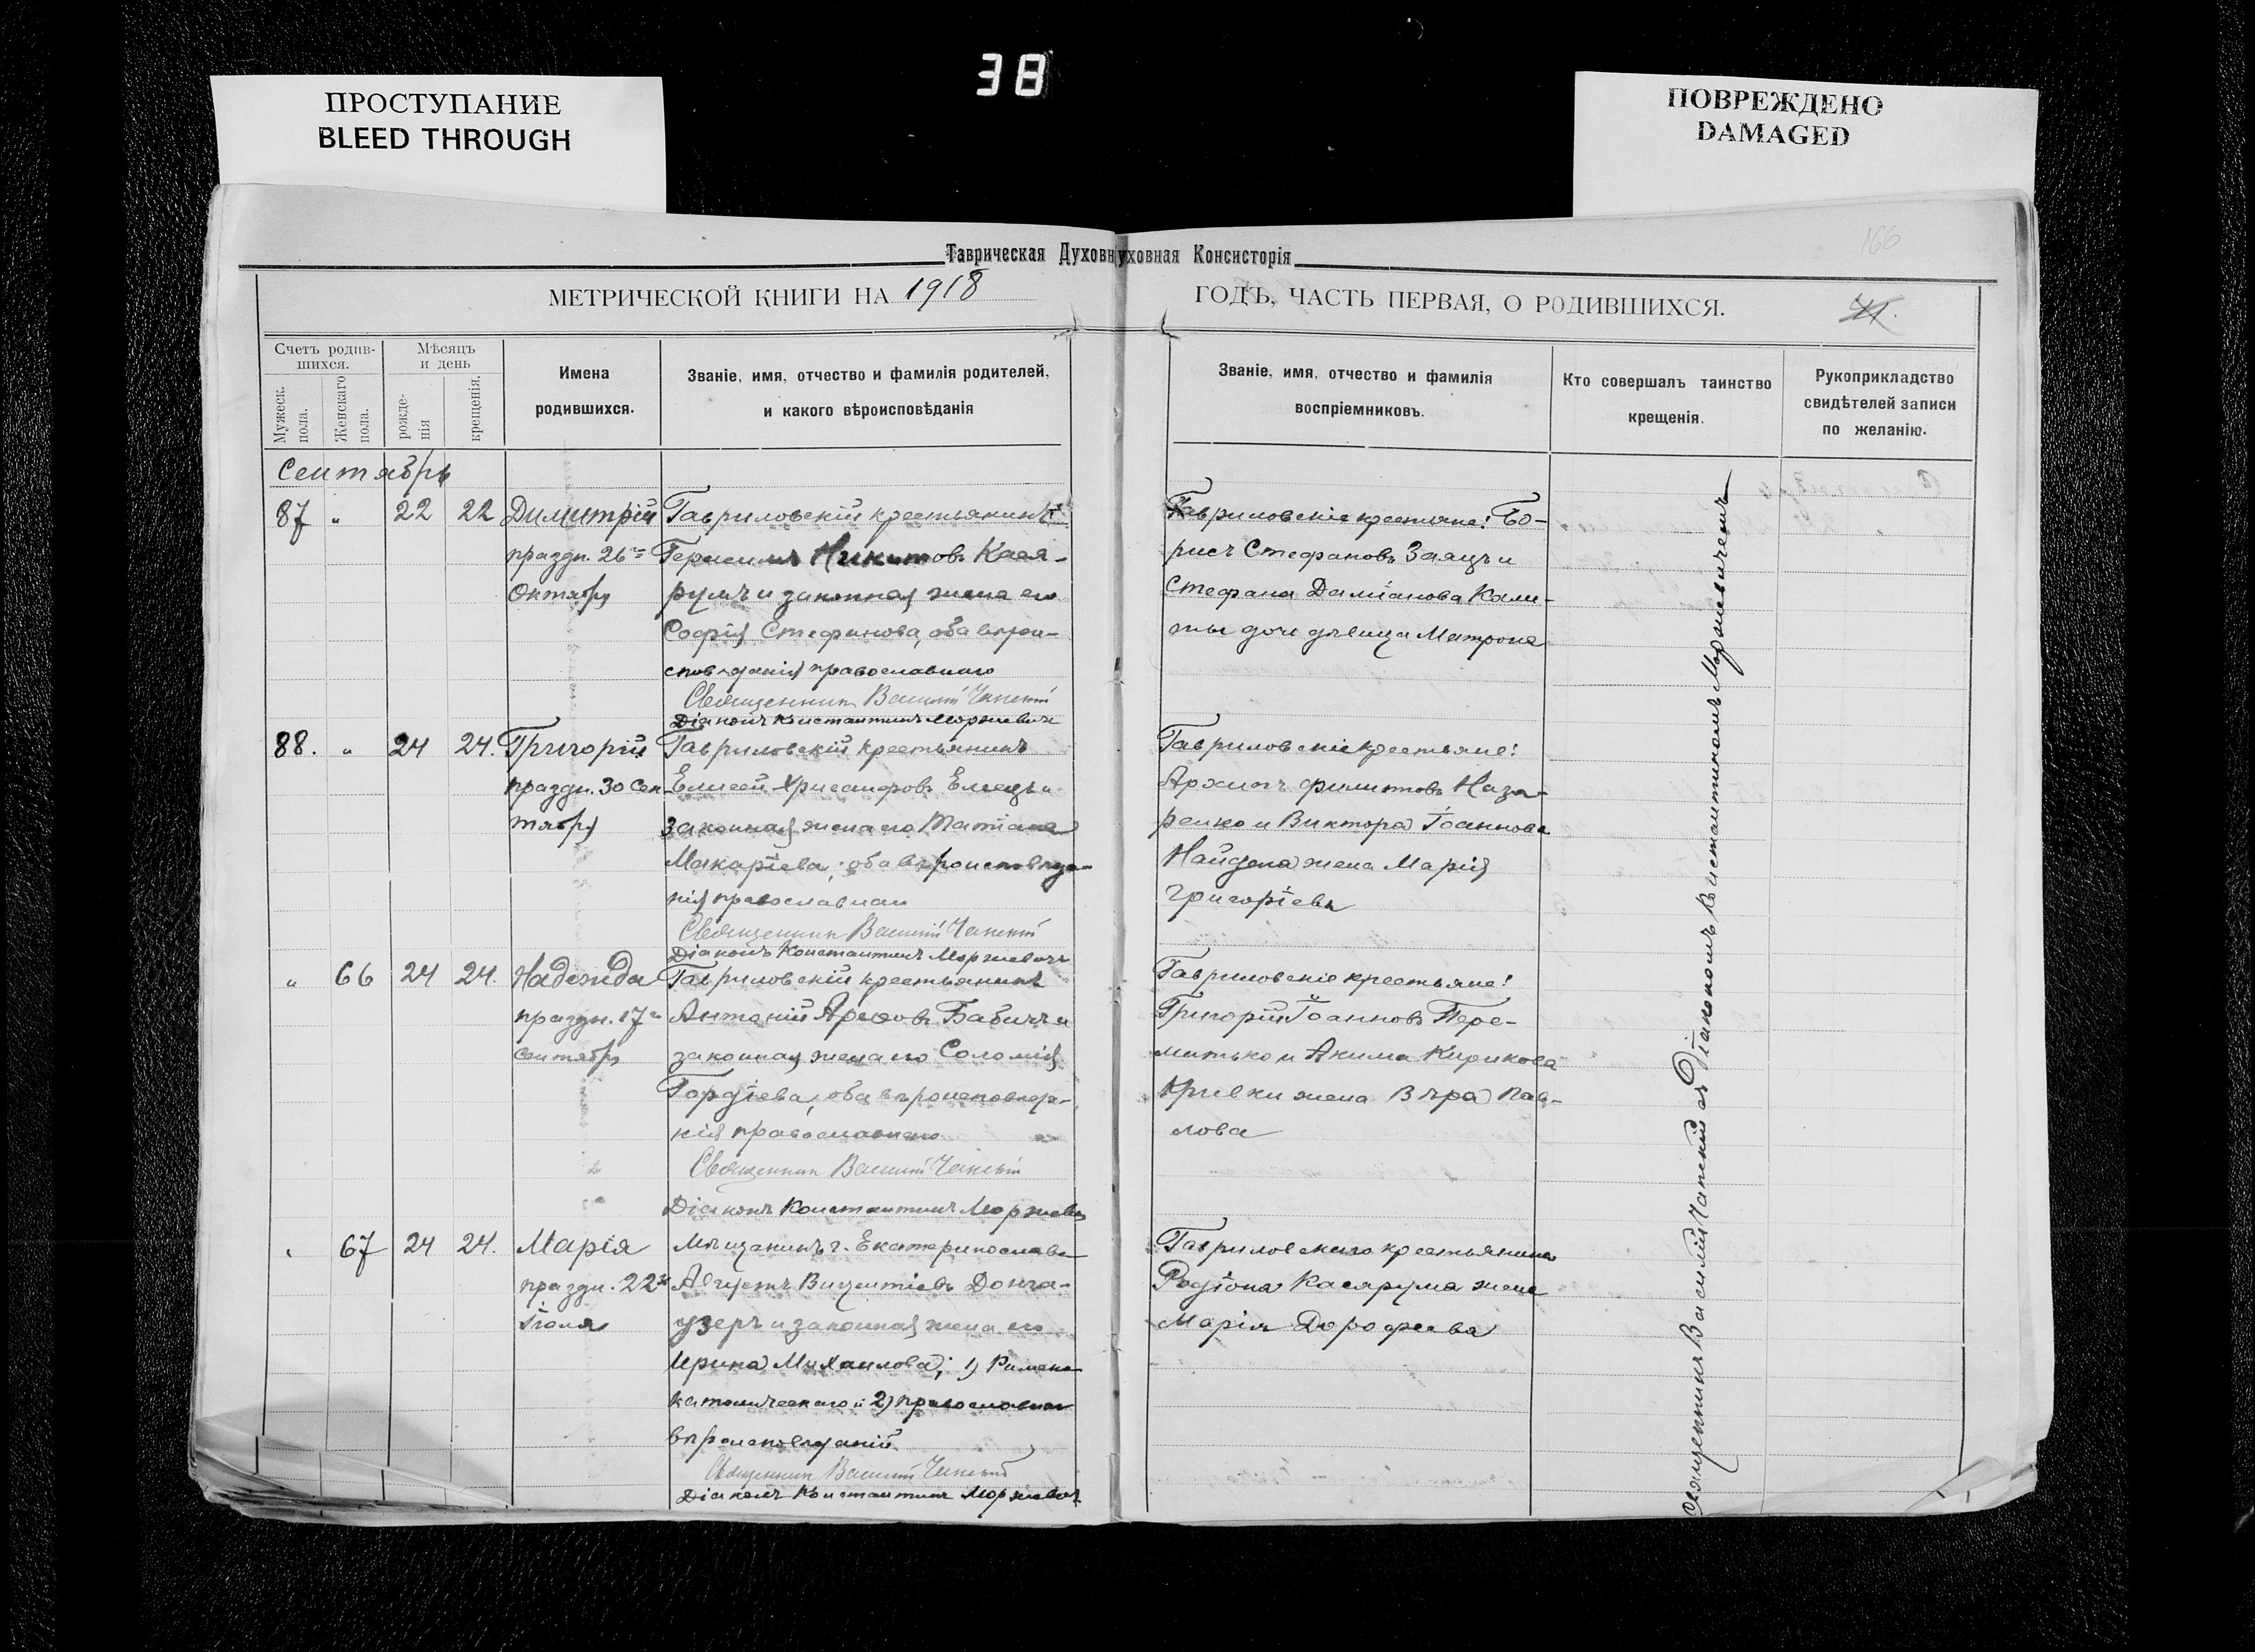 38
ПРОСТУПАНИЕ
BLEED THROUGH
ПОВРЕЖДЕНО
DAMAGED
166
Таврическая Духовн уховная Консисторія
МЕТРИЧЕСКОЙ КНИГИ НА 1918
ГОДЪ, ЧАСТЬ ПЕРВАЯ, О РОДИВШИХСЯ.
Счетъ родив-
шихся.
Мужеск. пола.
Женскаго пола.
Мѣсяцъ
и день
рожде-
нія
крещенія.
Имена
родившихся.
Званіе, имя, отчество и фамилія родителей,
и какого вѣроисповѣданія
Званіе, имя, отчество и фамилія
воспріемниковъ.
Кто совершалъ таинство
крещенія.
Рукоприкладство
свидѣтелей записи
по желанію.
Сентябрь
87 " 22 22 Димитрій
праздн. 26
Октября
Гавриловскій крестьянинъ
Герасимъ Никитовъ Кася-
румъ и законная жена его
Софія Стефанова, оба вѣрои-
сповѣданія православнаго
Священникъ Василій Чапскій
Діаконъ Константинъ Моржевичъ
Гавриловскіе крестьяне: Бо-
рисъ Стефановъ Заяцъ и
Стефана Даміанова Кали-
ты дочь дѣвица Матрона
88. " 24 24. Григорій
праздн. 30 Сен-
тября
Гавриловскій крестьянинъ
Елисей Хрисанфовъ Елецъ и
законная жена его Татіана
Макаріева, оба вѣроисповѣда-
нія православнаго
Священникъ Василій Чапскій
Діаконъ Константинъ Моржевичъ
Гавриловскіе крестьяне:
Архипъ Филиповъ Наза-
ренко и Виктора Іоаннова
Найдена жена Марія
Григоріева
" 66 24 24. Надежда
праздн. 17
Сентября
Гавриловскій крестьянинъ
Антоній Арефовъ Бабичъ и
законная жена его Соломія
Гордіева, оба вѣроисповѣда-
нія православнаго
Священникъ Василій Чапскій
Діаконъ Константинъ Моржевичъ
Гавриловскіе крестьяне:
Григорій Іоанновъ Пере-
митько и Акима Кирикова
Кривки жена Вѣра Пав-
лова
" 67 24 24. Марія
праздн. 22
Іюля
Мѣщанинъ г. Екатеринослава
Августъ Викентіевъ Донга-
узеръ и законная жена его
Ирина Михаилова; 1) Римско
католическаго и 2) православнаго
вѣроисповѣданій
Священникъ Василій Чапскій
Діаконъ Константинъ Моржевичъ
Гавриловскаго крестьянина
Родіона Касярума жена
Марія Дорофеева
Священникъ Василій Чапскій съ Діакономъ Константиномъ Моржевичемъ